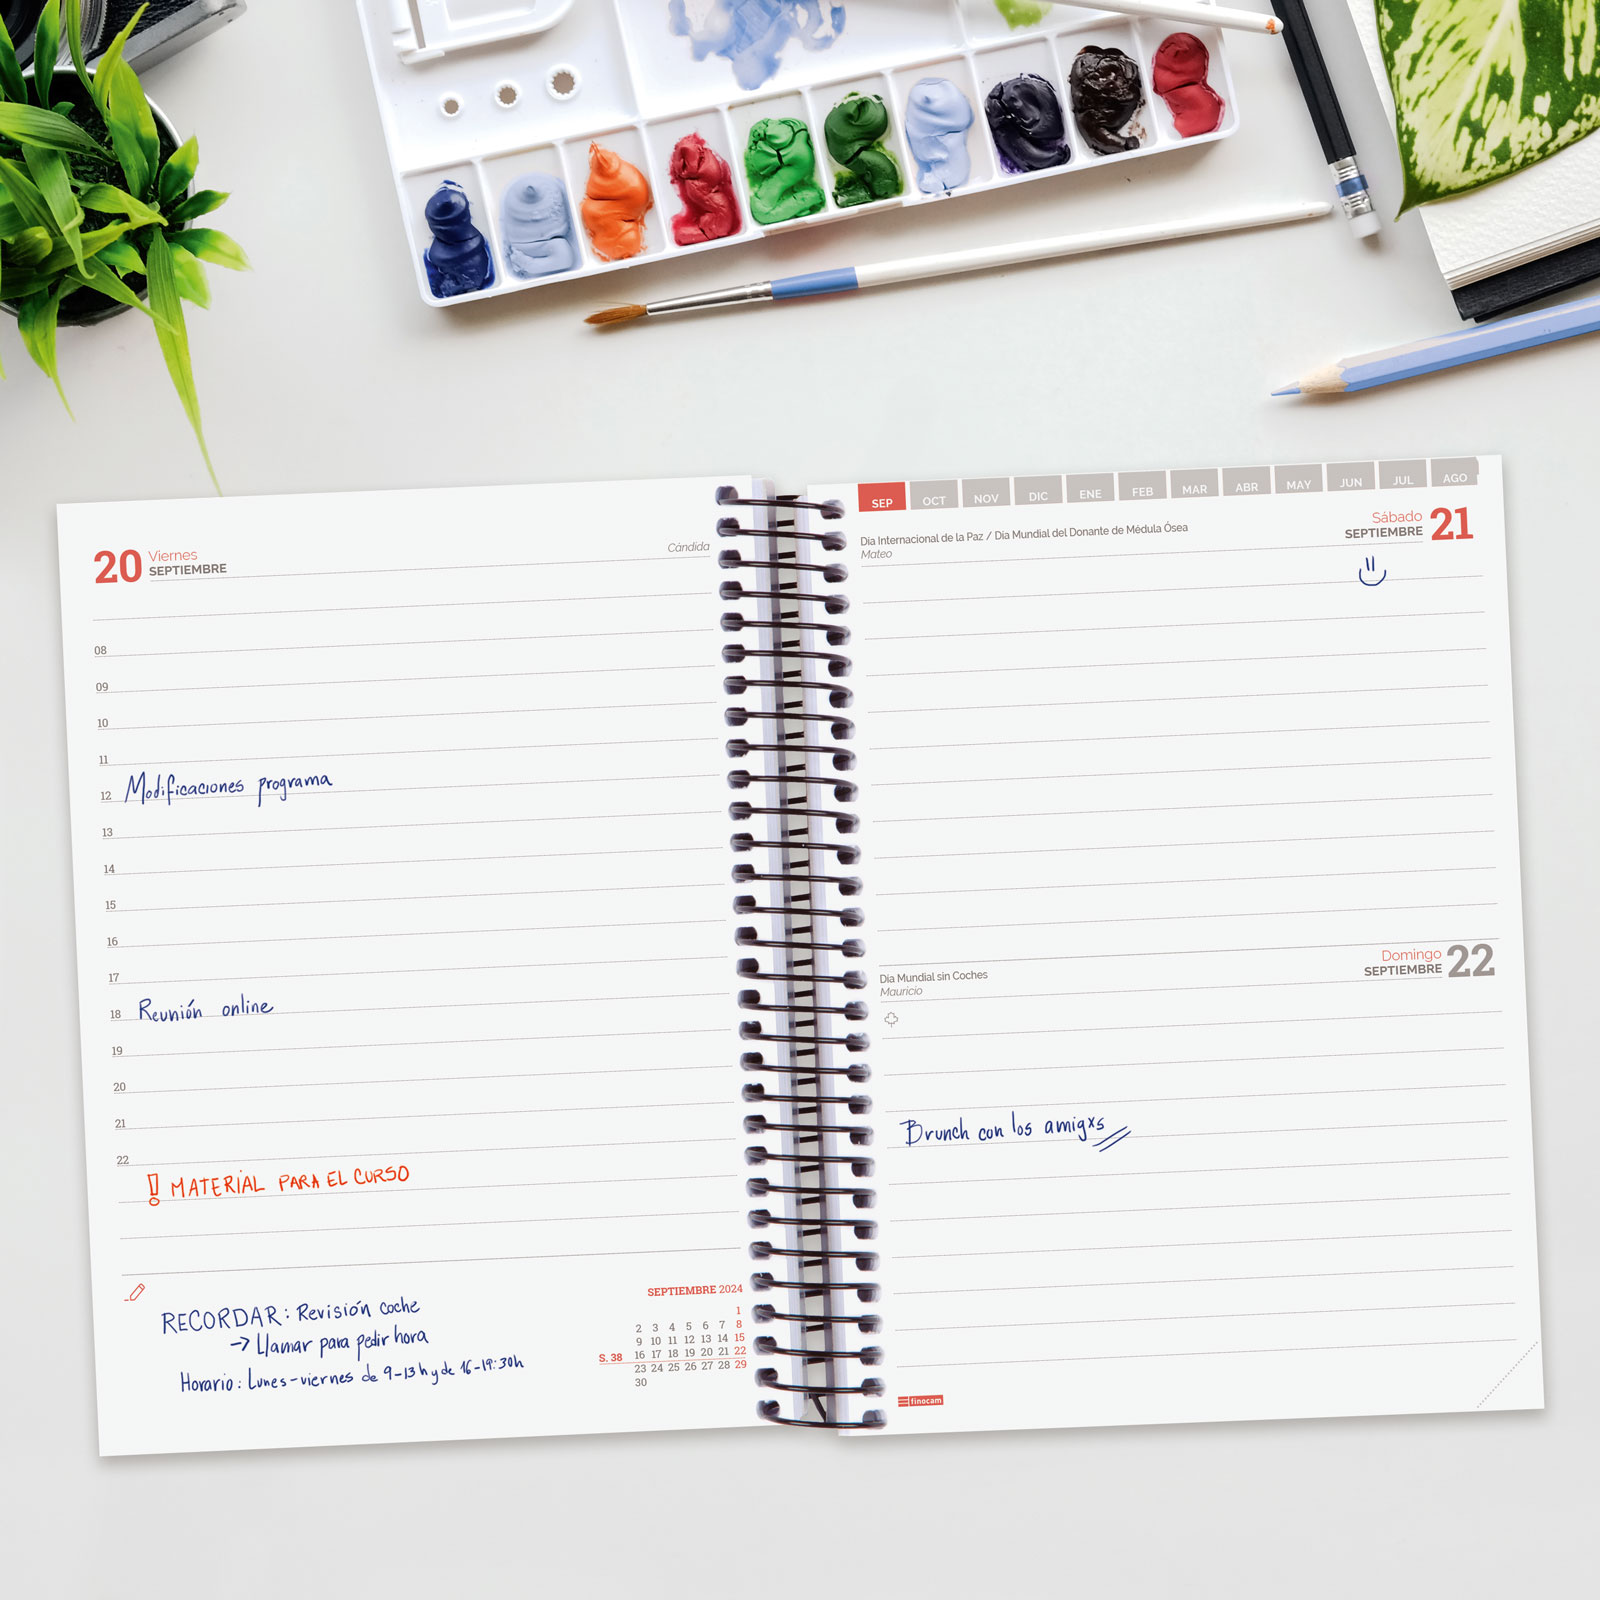 20 Viernes
SEPTIEMBRE
Cándida
08
09
10
11
12 Modificaciones programa
13
14
15
16
17
18 Reunión online
19
20
21
22
! MATERIAL PARA EL CURSO
RECORDAR: Revisión coche
→ Llamar para pedir hora
Horario: Lunes-viernes de 9-13h y de 16-19:30h
SEPTIEMBRE 2024
1
2 3 4 5 6 7 8
9 10 11 12 13 14 15
S. 38 16 17 18 19 20 21 22
23 24 25 26 27 28 29
30
SEP OCT NOV DIC ENE FEB MAR ABR MAY JUN JUL AGO
Día Internacional de la Paz / Día Mundial del Donante de Médula Ósea
Mateo
Sábado 21
SEPTIEMBRE
Día Mundial sin Coches
Mauricio
Domingo 22
SEPTIEMBRE
Brunch con los amigxs
finocam